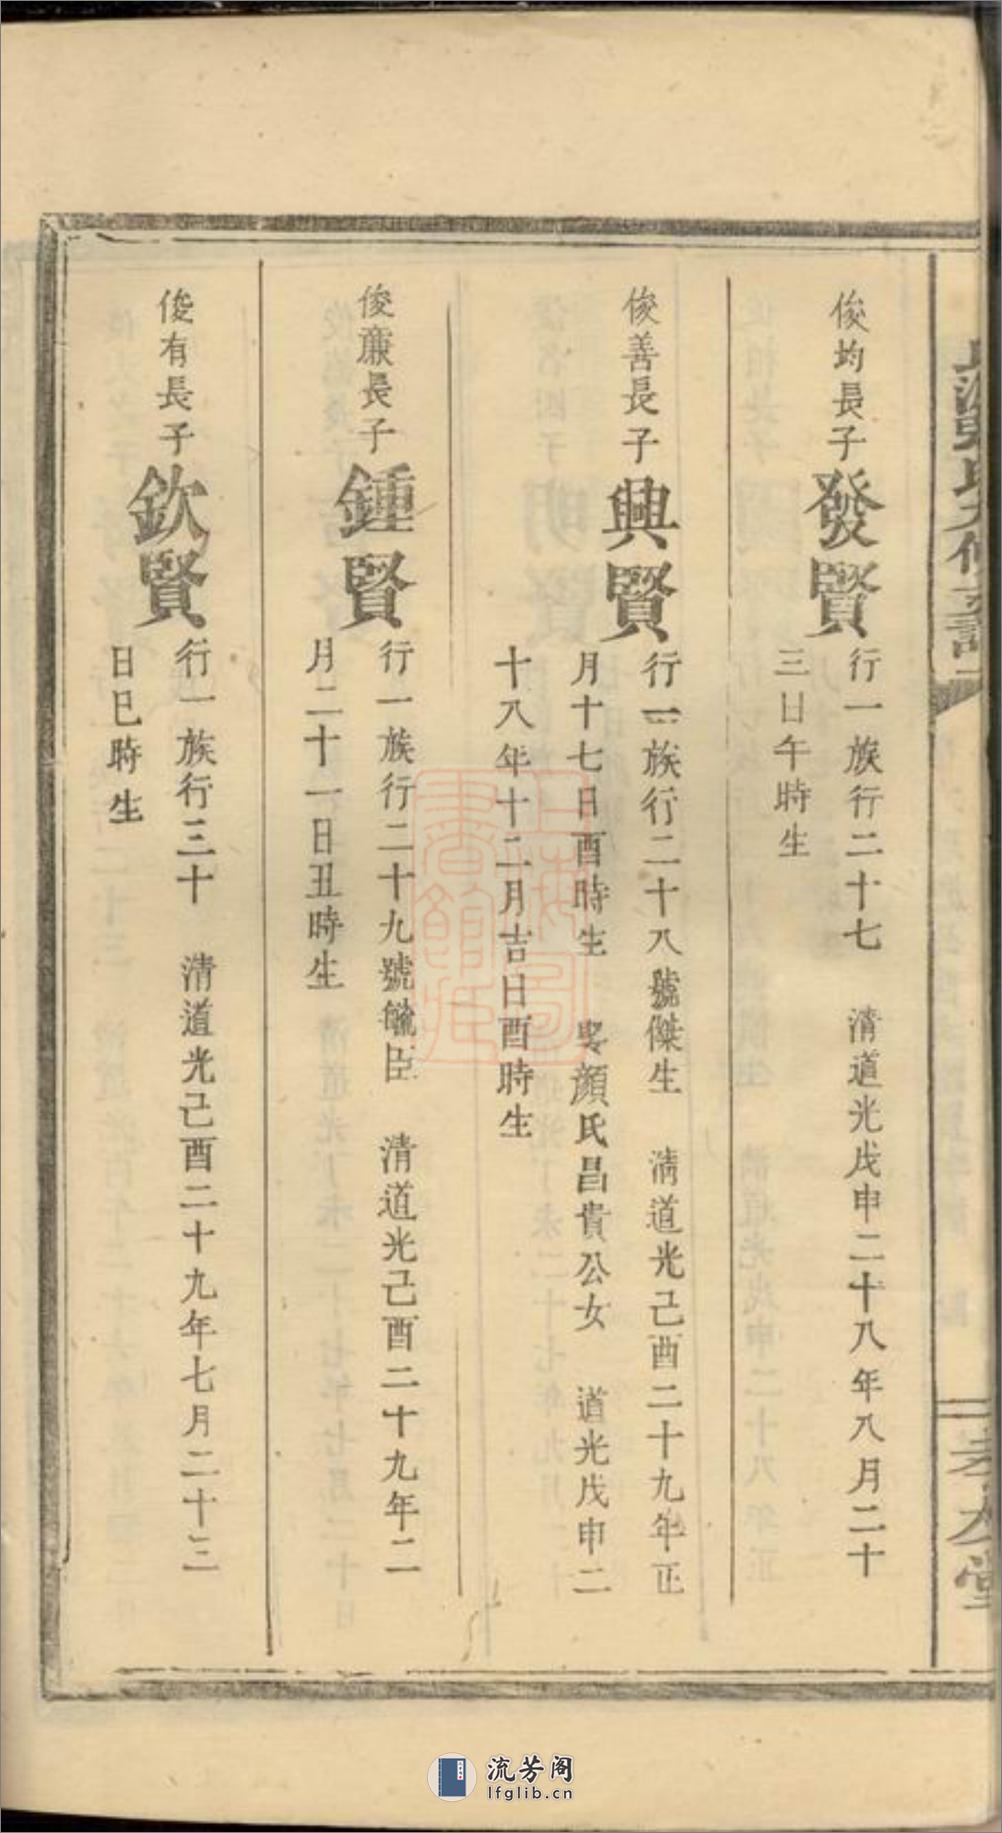 俊均長子
發賢
行一族行二十七 清道光戊申二十八年八月二十
三日午時生
俊善長子
興賢
行一族行二十八號傑生 清道光己酉二十九年正
月十七日酉時生 娶顏氏昌貴公女 道光戊申二
十八年十二月吉日酉時生
俊廉長子
鍾賢
行一族行二十九號毓臣 清道光己酉二十九年二
月二十一日丑時生
俊有長子
欽賢
行一族行三十 清道光己酉二十九年七月二十三
日巳時生
孝友堂
上海圖書館藏
流芳阁
lfglib.cn